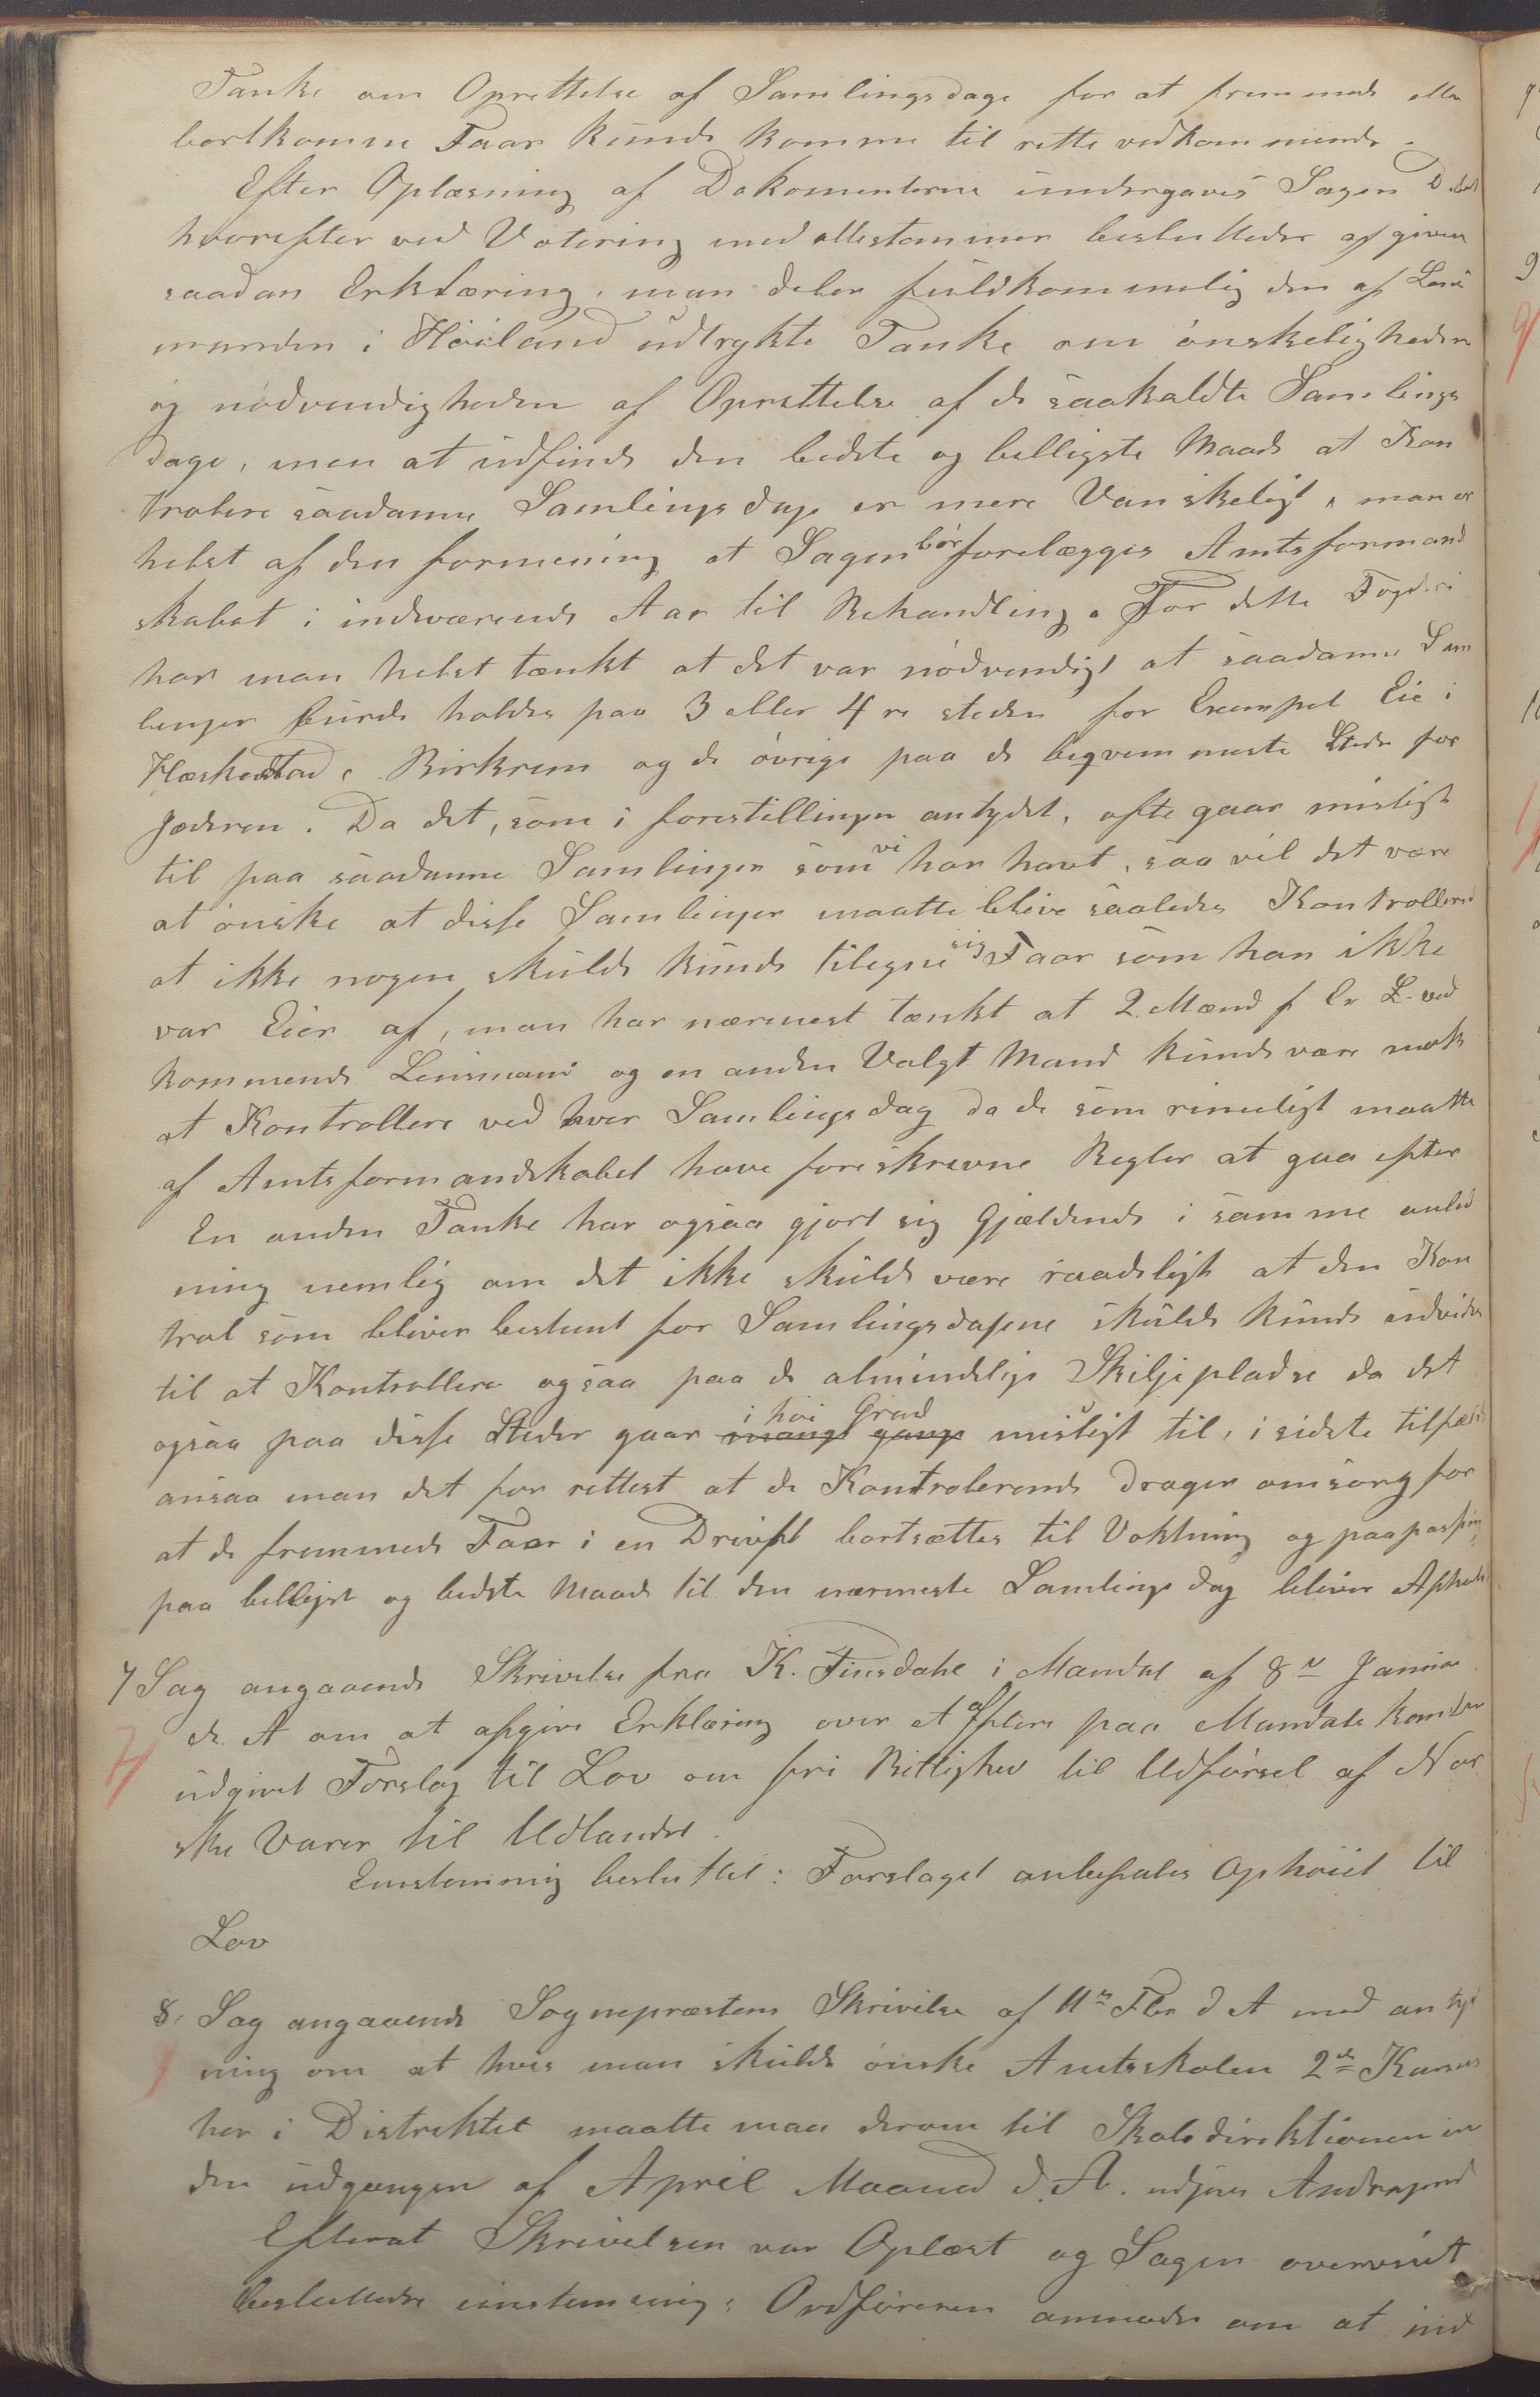 Tanke om Oprettelse af Samlingsdage for at fremmede eller
bortkomne Faar kunde komme til rette vedkommende.
Efter Oplæsning af Dokomenterne undergaves Sagen Debat
hvorefter ved Votering med allestemmer besluttedes afgiven
saadan Erklæring, man deler fuldkommelig den af Lens
manden i Høiland udtrykte Tanke om ønskeligheden
og nødvendigheden af Oprettelse af de saakaldte Samlings
dage, men at udfinde den bedste og belligste Maade at Kon
trolere saadanne Samlingsdage er mere Vanskeligt, man er
helst af den formening at Sagen bør forelægges Amtsformand
skabet i indeværende Aar til Behandling. For dette Fogderi
har man helst tænkt at det var nødvendigt at saadanne Sam
linger burde holdes paa 3 eller 4re steder for Exempel Eie i
Hæskestad, Birkrem og de øvrige paa de beqvemmeste Steder for
Jæderen. Da det, som i forestillingen antydet, ofte gaar misligt
til paa saadanne Samlinger som vi har havt, saa vil det være
at ønske at disse Samlinger maatte blive saaledes Kontrolleret
at ikke nogen skulde kunde tilegne sig Faar som han ikke
var Eier af, man har nærmest tænkt at 2 Mænd f Ex L. ved
kommende Lensmand og en anden Valgt Mand kunde være nok
at Kontrollere ved hver Samlingsdag da de som rimeligt maatte
af Amtsformandskabet have foreskrevne Regler at gaa efter
En anden Tanke har ogsaa gjort sig Gjældende i samme anled
ning nemlig om det ikke skulde være raadeligt at den Kon
trol som bliver bestemt for Samlingsdagene skulde kunde udvides
til at Kontrollere ogsaa paa de almindelige Skiljepladse da det
ogsaa paa disse Steder gaar mange gange i høi Grad misligt til, i sidste tilfælde
ansaa man det for rettest at de Kontrolerende drager omsorg for
at de fremmede Faar i en Drivft bortsættes til Voktning og paapasning
paa belligst og bedste Maade til den nærmeste Samlingsdag bliver Afholdt
7 Sag angaaende Skrivelse fra K. Finsdahl i Mandal af 8de Januar
d. A om at afgive Erklæring over et af flere paa Mandals kanter
udgivet Forslag til Lov om fri Rettighed til Udførsel af Nor
ske Varer til Udlandet.
Enstemmig besluttet: Forslaget anbefales Ophøiet til
Lov
8, Sag angaaende Sognepræstens Skrivelse af 11te Fbr d A med antyd
ning om at hvis man skulde ønske Amtsskolen 2det Kursus
her i Distriktet maatte man derom til Skoledirektionen in
den udgangen af April Maaned d. A. udgive Andragende
Efterat Skrivelsen var Oplæst og Sagen overveiet
besluttedes enstemmig: Ordføreren anmodes om at ind